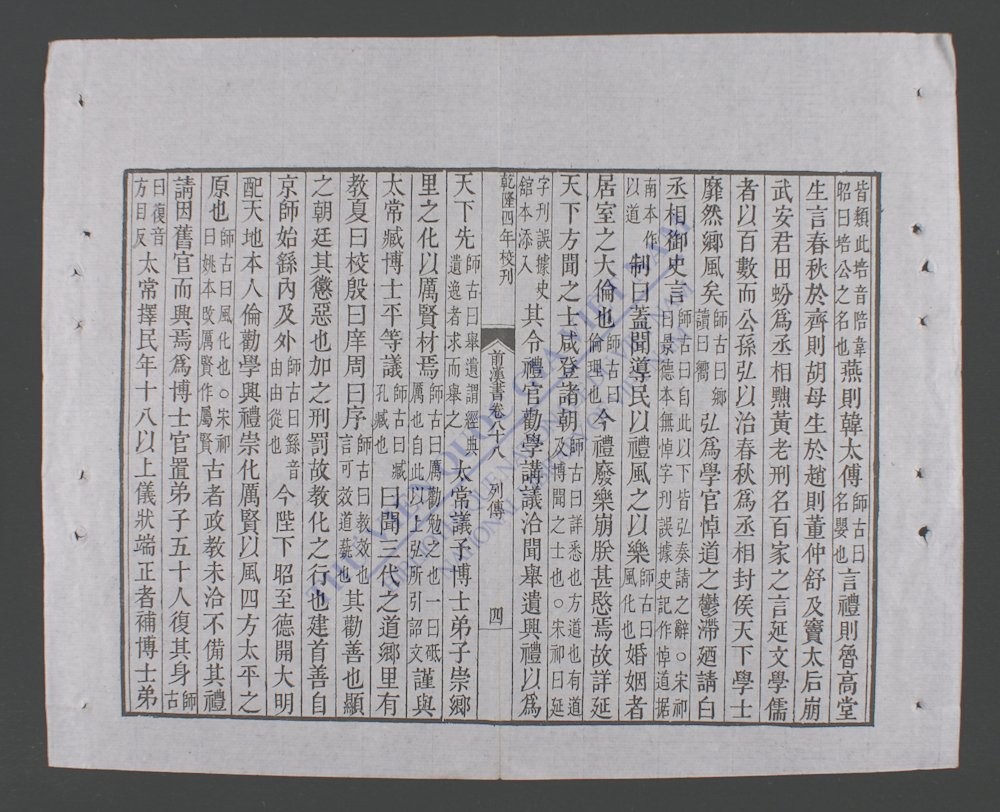 皆類此培音陪韋昭曰培公之名也燕則韓太傅師古曰名嬰也言禮則魯高堂
生言春秋於齊則胡母生於趙則董仲舒及竇太后崩
武安君田蚡爲丞相黜黃老刑名百家之言延文學儒
者以百數而公孫弘以治春秋爲丞相封侯天下學士
靡然鄉風矣師古曰鄉讀曰嚮弘爲學官悼道之鬱滯廼請白
丞相御史言師古曰自此以下皆弘奏請之辭○宋祁曰景德本無悼字刊誤據史記作悼道据
南本作以道制曰蓋聞導民以禮風之以樂師古曰風化也婚姻者
居室之大倫也師古曰倫理也今禮廢樂崩朕甚愍焉故詳延
天下方聞之士咸登諸朝師古曰詳悉也方道也有道及博聞之士也○宋祁曰延
字刊誤據史館本添入其令禮官勸學講議洽聞舉遺興禮以爲
乾隆四年校刊
前漢書卷八十八 列傳 四
天下先師古曰舉遺謂經典遺逸者求而舉之太常議予博士弟子崇鄉
里之化以厲賢材焉師古曰厲勸勉之也一曰砥厲也自此以上弘所引詔文謹與
太常臧博士平等議師古曰臧孔臧也曰聞三代之道鄉里有
教夏曰校殷曰庠周曰序師古曰教效也言可效道蓺也其勸善也顯
之朝廷其懲惡也加之刑罰故教化之行也建首善自
京師始繇內及外師古曰繇音由由從也今陛下昭至德開大明
配天地本人倫勸學興禮崇化厲賢以風四方太平之
原也師古曰風化也○宋祁曰姚本改厲賢作屬賢古者政教未洽不備其禮
請因舊官而興焉爲博士官置弟子五十人復其身師古
曰復音方目反太常擇民年十八以上儀狀端正者補博士弟